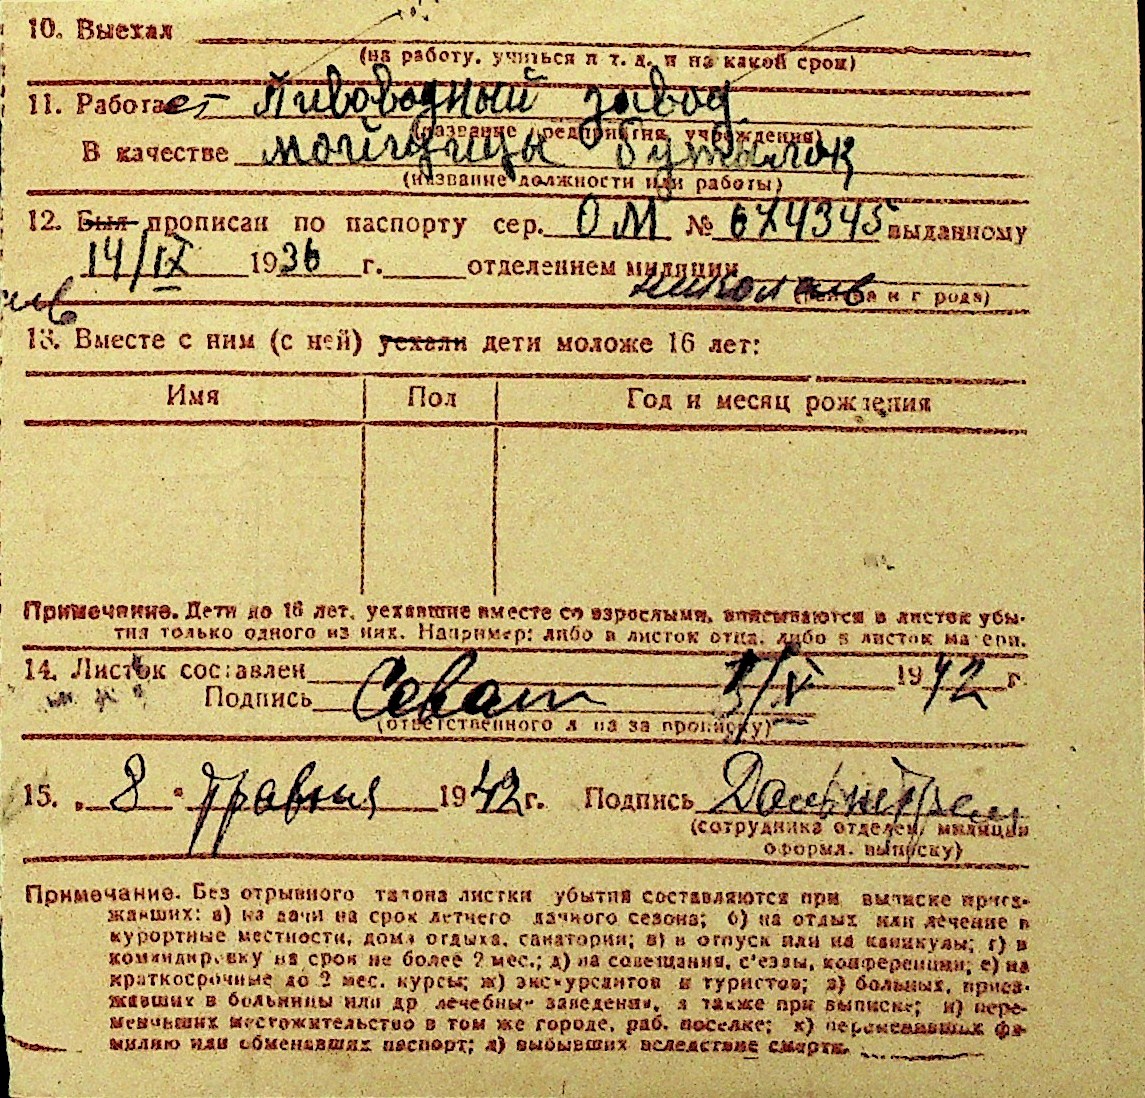 10. Выехал
(на работу, учиться и т. д. и на какой срок)
11. Работает Пивоводный завод
(название предприятия, учреждения)
В качестве мойщицы бутылок
(название должности или работы)
12. Был прописан по паспорту сер. ОМ № 674345 выданному
14/IX 1936 г. отделением милиции
Николаев
(района и города)
13. Вместе с ним (с ней) уехали дети моложе 16 лет:
Имя Пол Год и месяц рождения
Примечание. Дети до 16 лет, уехавшие вместе со взрослыми, вписываются в листок убы-
тия только одного из них. Например: либо в листок отца, либо в листок матери.
14. Листок составлен 1942 г.
Подпись
(ответственного лица за прописку)
15. „ 8 " травня 1942 г. Подпись
(сотрудника отделен. милиции
оформл. выписку)
Примечание. Без отрывного талона листки убытия составляются при выписке приез-
жавших: а) на дачи на срок летнего дачного сезона; б) на отдых или лечение в
курортные местности, дома отдыха, санатории; в) в отпуск или на каникулы; г) в
командировку на срок не более 2 мес.; д) на совещания, с'езды, конференции; е) на
краткосрочные до 2 мес. курсы; ж) экскурсантов и туристов; з) больных, приез-
жавших в больницы или др лечебные заведения, а также при выписке; и) пере-
менивших местожительство в том же городе, раб. поселке; к) переменивших фа-
милию или обменавших паспорт; л) выбывших вследствие смерти.